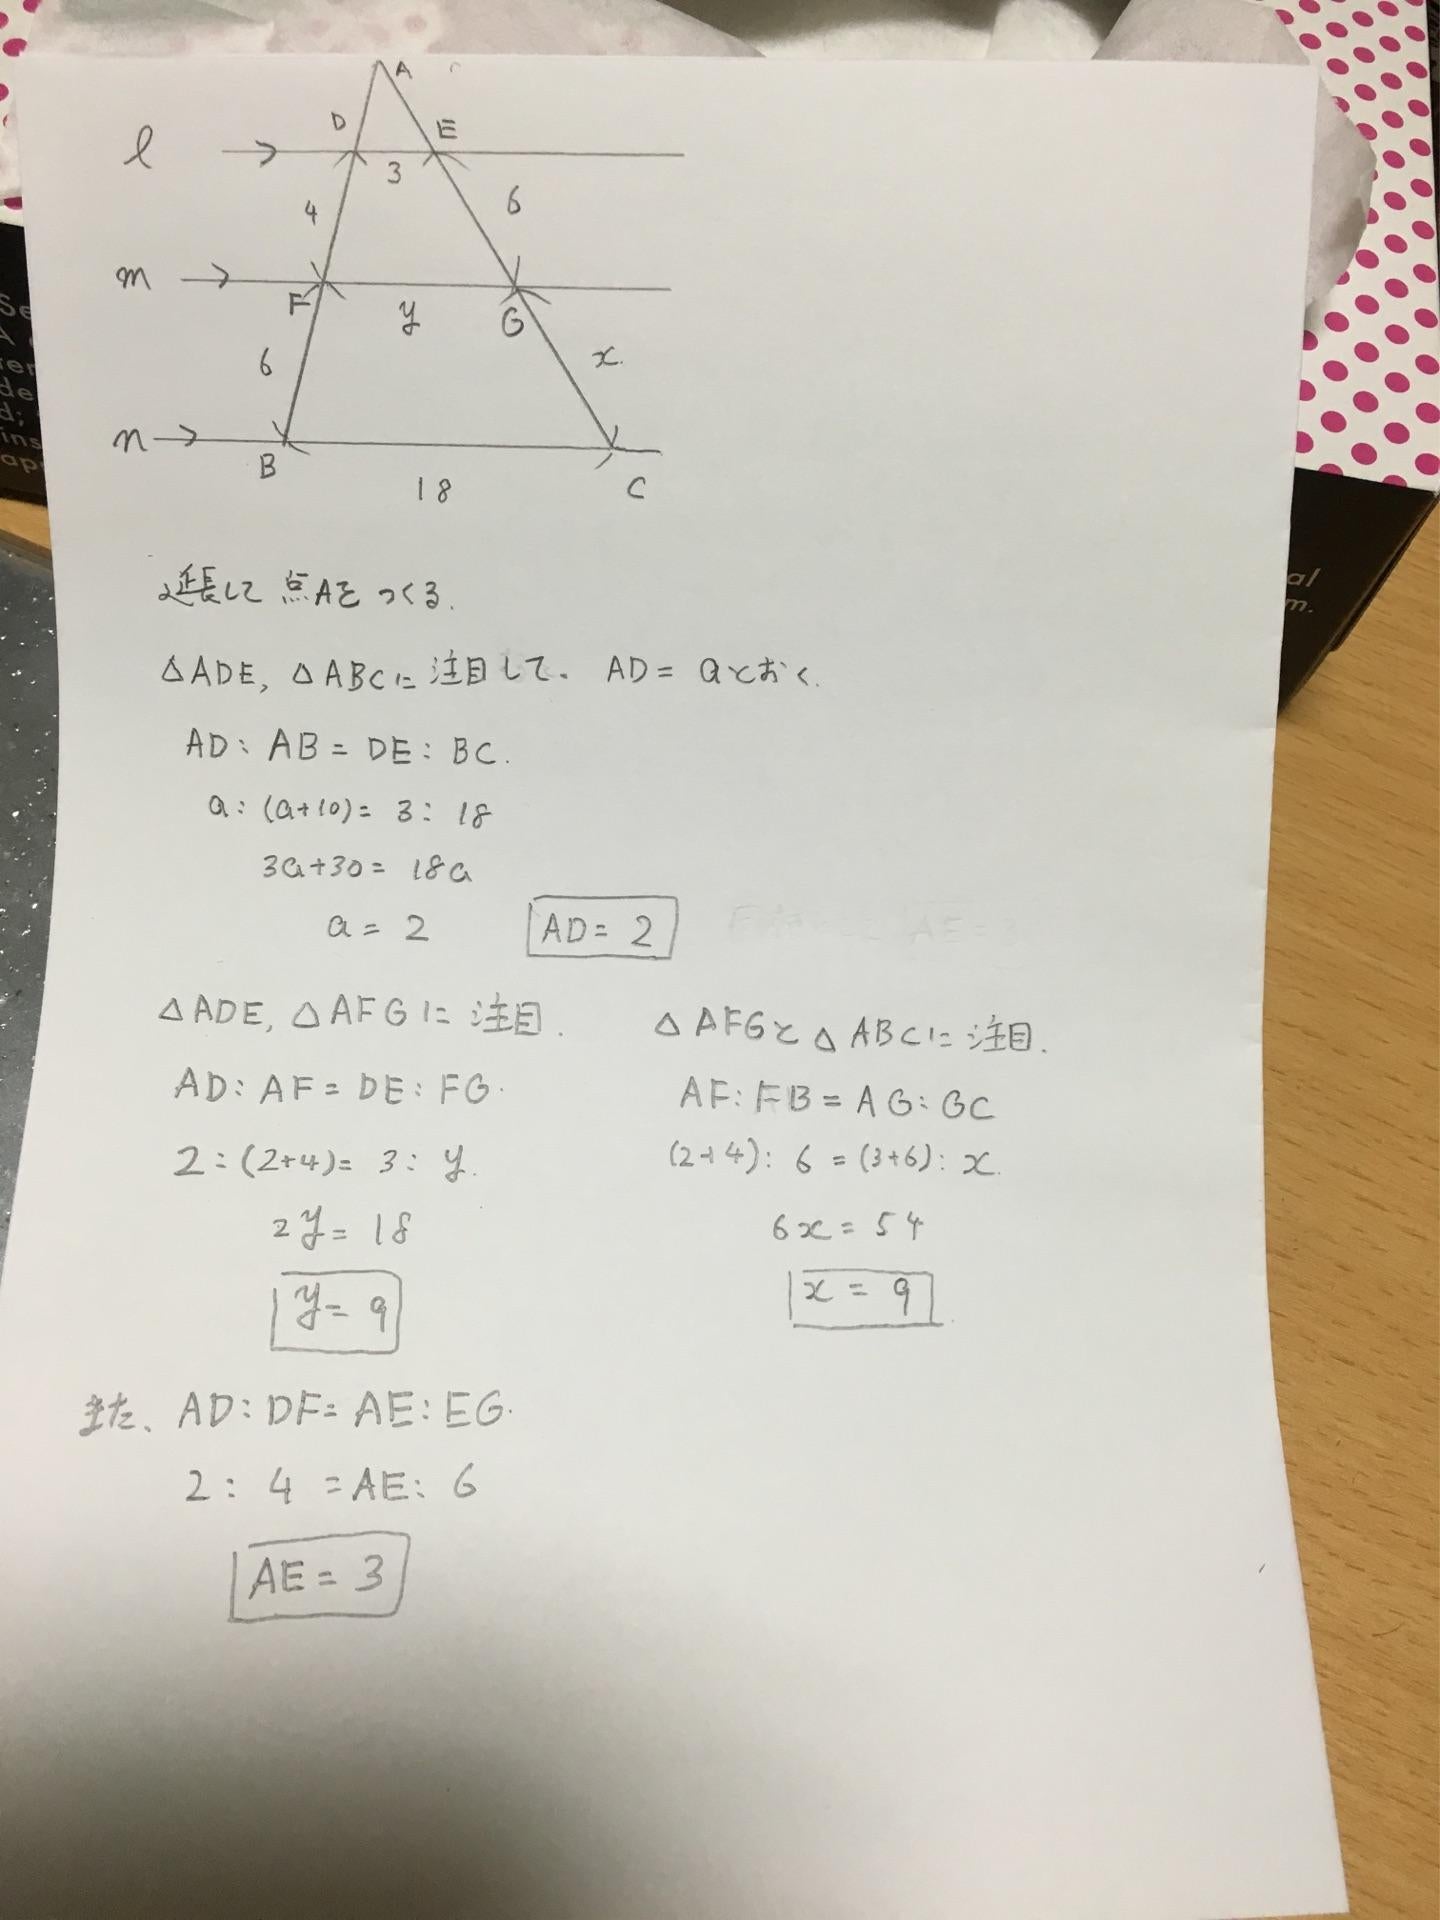 A
D E
l
3
4 6
m
F y G
6 x
n
B 18 C
延長して 点Aをつくる.
△ADE, △ABCに 注目して. AD= aとおく.
AD: AB = DE: BC.
a: (a+10)= 3: 18
3a+30= 18a
a = 2 AD= 2
△ADE, △AFGに 注目.
AD: AF= DE: FG.
2:(2+4)= 3: y.
2y= 18
y= 9
△AFGと△ABCに注目.
AF: FB= AG: GC
(2+4): 6 =(3+6): x.
6x= 54
x = 9
また、AD: DF= AE: EG.
2: 4 =AE: 6
AE= 3